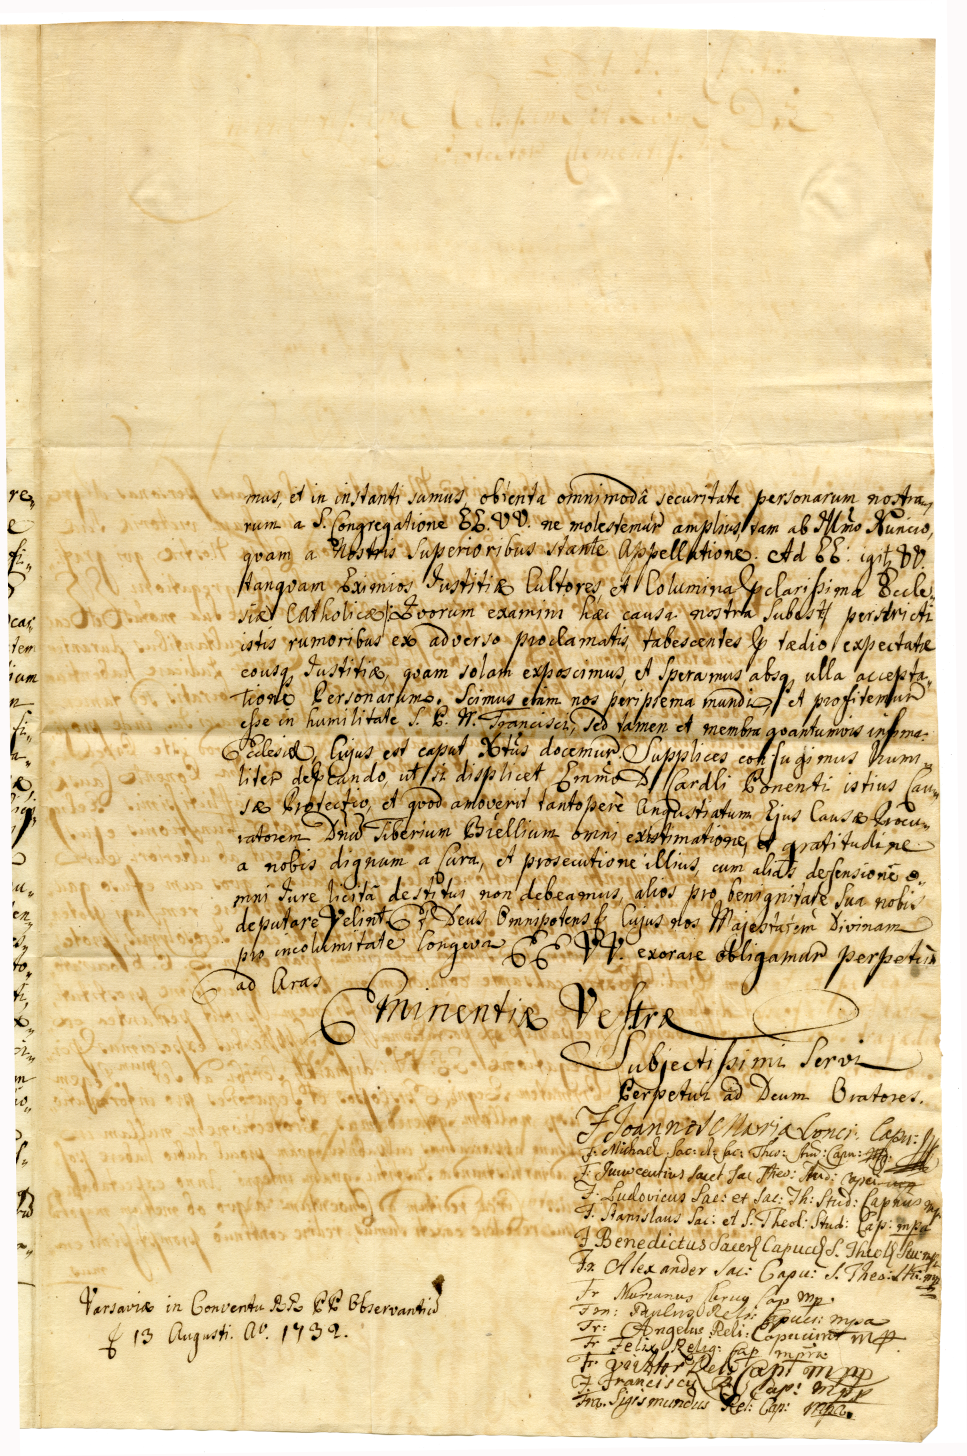 mus, et in instanti sumus, obtenta omnimodâ securitate personarum nostra,,
rum a S. Congregatione EE. VV. ne molestemur amplius, tam ab Illmo Nuncio,
quam a Nostris Superioribus stante Appellatione. Ad EE. VV.
tanquam Eximios Justitiæ Cultores et Columina clarissima Eccle,,
siæ Catholicæ, Quorum examini hæc causa nostra perstricti
istis rumoribus ex adverso proclamatis, tabescentes tædio expectatæ
eousq; Justitiæ, quam solam exposcimus, et speramus absq; ulla accepta,,
tione Personarum. Scimus etiam nos peripsema mundi, et profitemur
esse in humilitate S. P. N. Francisci, sed tamen et membra quantumvis infima
Ecclesiæ Cujus est caput Xtus docemur. Supplices confugimus humi,,
liter deprecando, ut si displicet Emmo D. Cardli Ponenti istius Cau,,
sæ Protectio, et quod amoverit tantopere angustiatum Ejus Causæ Procu,,
ratorem Dnum Tiberium Biellium omni existimatione, et gratitudine
a nobis dignum a Cura, et prosecutione illius, cum alias defensione o,,
mni Jure licitâ destitui non debeamus, alios pro benignitate sua nobis
deputare Velint. Deus Omnipotens Cujus nos Majestatem Divinam
pro incolumitate longeva EE VV. exorare obligamur perpetim
ad Aras
Eminentiæ Vestræ
Subjectissimi Servi
Perpetui ad Deum Oratores.
F. Joannes Maria Conci: Capu:
F. Michael Sac: et Sac: Theo: Stud: Capu:
F. Juvecentius Sac: Theo: Stud:
F. Ludovicus Sac: et Sac: Th: Stud: Capnus mp
F. Stanislaus Sac: et S. Theol: Stud: Cap: mpa
F Benedictus Sacer Capuc S. Theol Stu: mp
Fr Alexander Sac: Capu: S. Theo: Stu: mp
Fr Marianus Cap mp.
Paulus Reli: Capuci: mpa
Fr: Angelus Reli: Capucinus mp.
Fr Felix Relig: Cap
Fr Victor Reli Cap mpp
F Franciscus Cap: mpp
Fra. Sigismundus Rel: Cap: mpa.
Varsaviæ in Conventu RR PP Observantiu
13 Augusti. Ao. 1732.